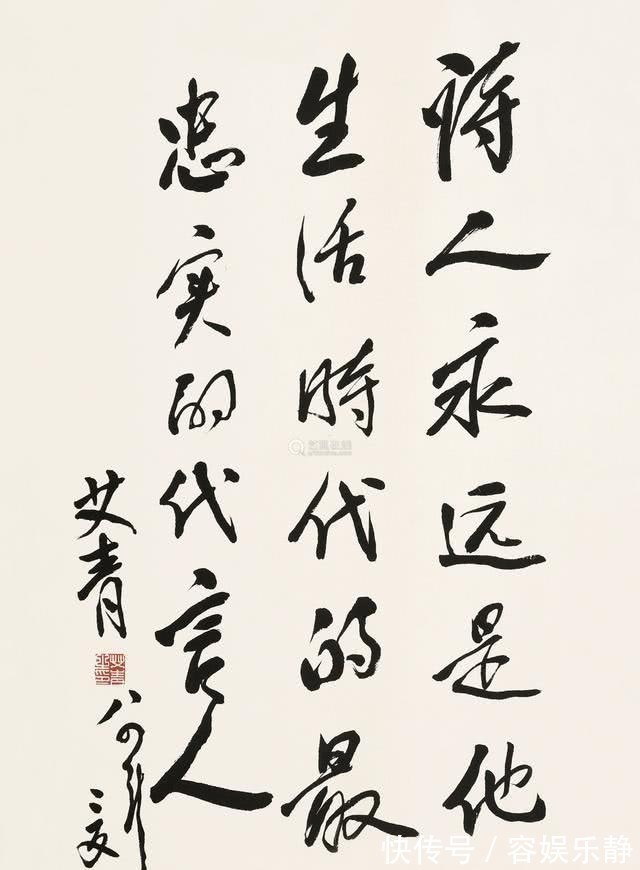 诗人永远是他
生活時代的最
忠实的代言人
艾青
八四年
快传号 / 容娱乐静